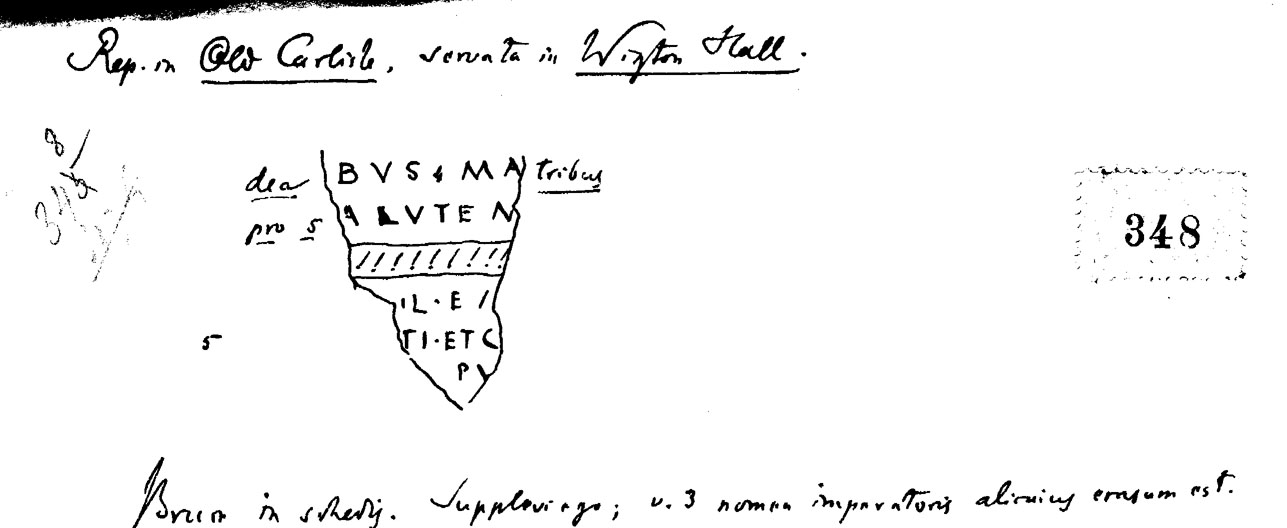 Rep. in Old Carlisle, servata in Wigton Hall.
348
dea BVS MA tribus
pro s ALVTEN
348
IL·E
5 TI·ETC
PV
Bruce in schedis. Supplevi ego; v. 3 nomen imperatoris alicuius erasum est.